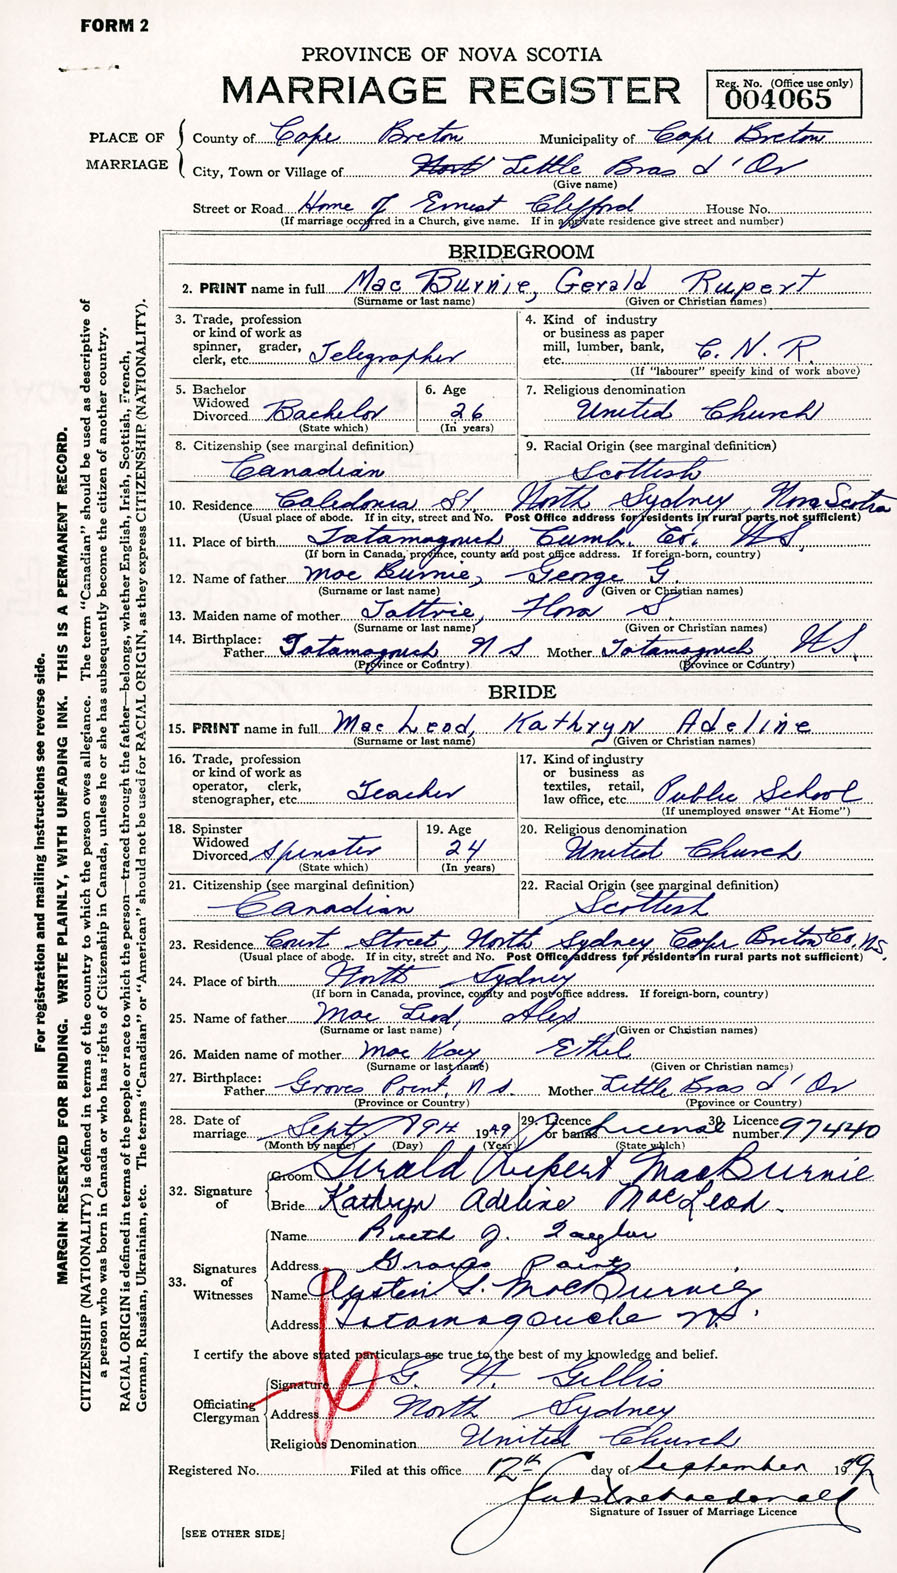 FORM 2
PROVINCE OF NOVA SCOTIA
MARRIAGE REGISTER
Reg. No. (Office use only)
004065
PLACE OF MARRIAGE
County of Cape Breton Municipality of Cape Breton
City, Town or Village of North Little Bras d'Or
(Give name)
Street or Road Home of Ernest Clifford House No.
(If marriage occurred in a Church, give name. If in a private residence give street and number)
BRIDEGROOM
2. PRINT name in full Mac Burnie, Gerald Rupert
(Surname or last name) (Given or Christian names)
3. Trade, profession or kind of work as spinner, grader, clerk, etc. Telegrapher
4. Kind of industry or business as paper mill, lumber, bank, etc. C. N. R.
(If "labourer" specify kind of work above)
5. Bachelor Widowed Divorced Bachelor
(State which)
6. Age 26
(In years)
7. Religious denomination
United Church
8. Citizenship (see marginal definition)
Canadian
9. Racial Origin (see marginal definition)
Scottish
10. Residence Caledonia St. North Sydney, Nova Scotia
(Usual place of abode. If in city, street and No. Post Office address for residents in rural parts not sufficient)
11. Place of birth Tatamagouch Cumb. Co. NS,
(If born in Canada, province, county and post office address. If foreign-born, country)
12. Name of father Mac Burnie, George G.
(Surname or last name) (Given or Christian names)
13. Maiden name of mother Tattrie, Flora S
(Surname or last name) (Given or Christian names)
14. Birthplace: Father Tatamagouch N S Mother Tatamagouch, NS.
(Province or Country) (Province or Country)
BRIDE
15. PRINT name in full Mac Leod, Kathryn Adeline
(Surname or last name) (Given or Christian names)
16. Trade, profession or kind of work as operator, clerk, stenographer, etc. Teacher
17. Kind of industry or business as textiles, retail, law office, etc. Public School
(If unemployed answer "At Home")
18. Spinster Widowed Divorced Spinster
(State which)
19. Age 24
(In years)
20. Religious denomination
United Church
21. Citizenship (see marginal definition)
Canadian
22. Racial Origin (see marginal definition)
Scottish
23. Residence Court Street, North Sydney Cape Breton Co. N.S.
(Usual place of abode. If in city, street and No. Post Office address for residents in rural parts not sufficient)
24. Place of birth North Sydney
(If born in Canada, province, county and post office address. If foreign-born, country)
25. Name of father Mac Leod, Alex
(Surname or last name) (Given or Christian names)
26. Maiden name of mother Mac Kay Ethel
(Surname or last name) (Given or Christian names)
27. Birthplace: Father Groves Point, N S. Mother Little Bras d'Or
(Province or Country) (Province or Country)
28. Date of marriage Sept. 9th 1949
(Month by name) (Day) (Year)
29. Licence or banns License
(State which)
30. Licence number 97440
32. Signature of
Groom Gerald Rupert MacBurnie
Bride Kathryn Adeline MacLeod.
33. Signatures of Witnesses
Name Ruth J. Taylor
Address Groves Point
Name Austin S. MacBurnie
Address Tatamagouche NS.
I certify the above stated particulars are true to the best of my knowledge and belief.
Officiating Clergyman
Signature G. H. Gillis
Address North Sydney
Religious Denomination United Church
Registered No. Filed at this office 12th day of September 1949
Signature of Issuer of Marriage Licence
[SEE OTHER SIDE]
For registration and mailing instructions see reverse side.
MARGIN RESERVED FOR BINDING. WRITE PLAINLY, WITH UNFADING INK. THIS IS A PERMANENT RECORD.
CITIZENSHIP (NATIONALITY) is defined in terms of the country to which the person owes allegiance. The term "Canadian" should be used as descriptive of
a person who was born in Canada or who has rights of Citizenship in Canada, unless he or she has subsequently become the citizen of another country.
RACIAL ORIGIN is defined in terms of the people or race to which the person—traced through the father—belongs, whether English, Irish, Scottish, French,
German, Russian, Ukrainian, etc. The terms "Canadian" or "American" should not be used for RACIAL ORIGIN, as they express CITIZENSHIP (NATIONALITY).